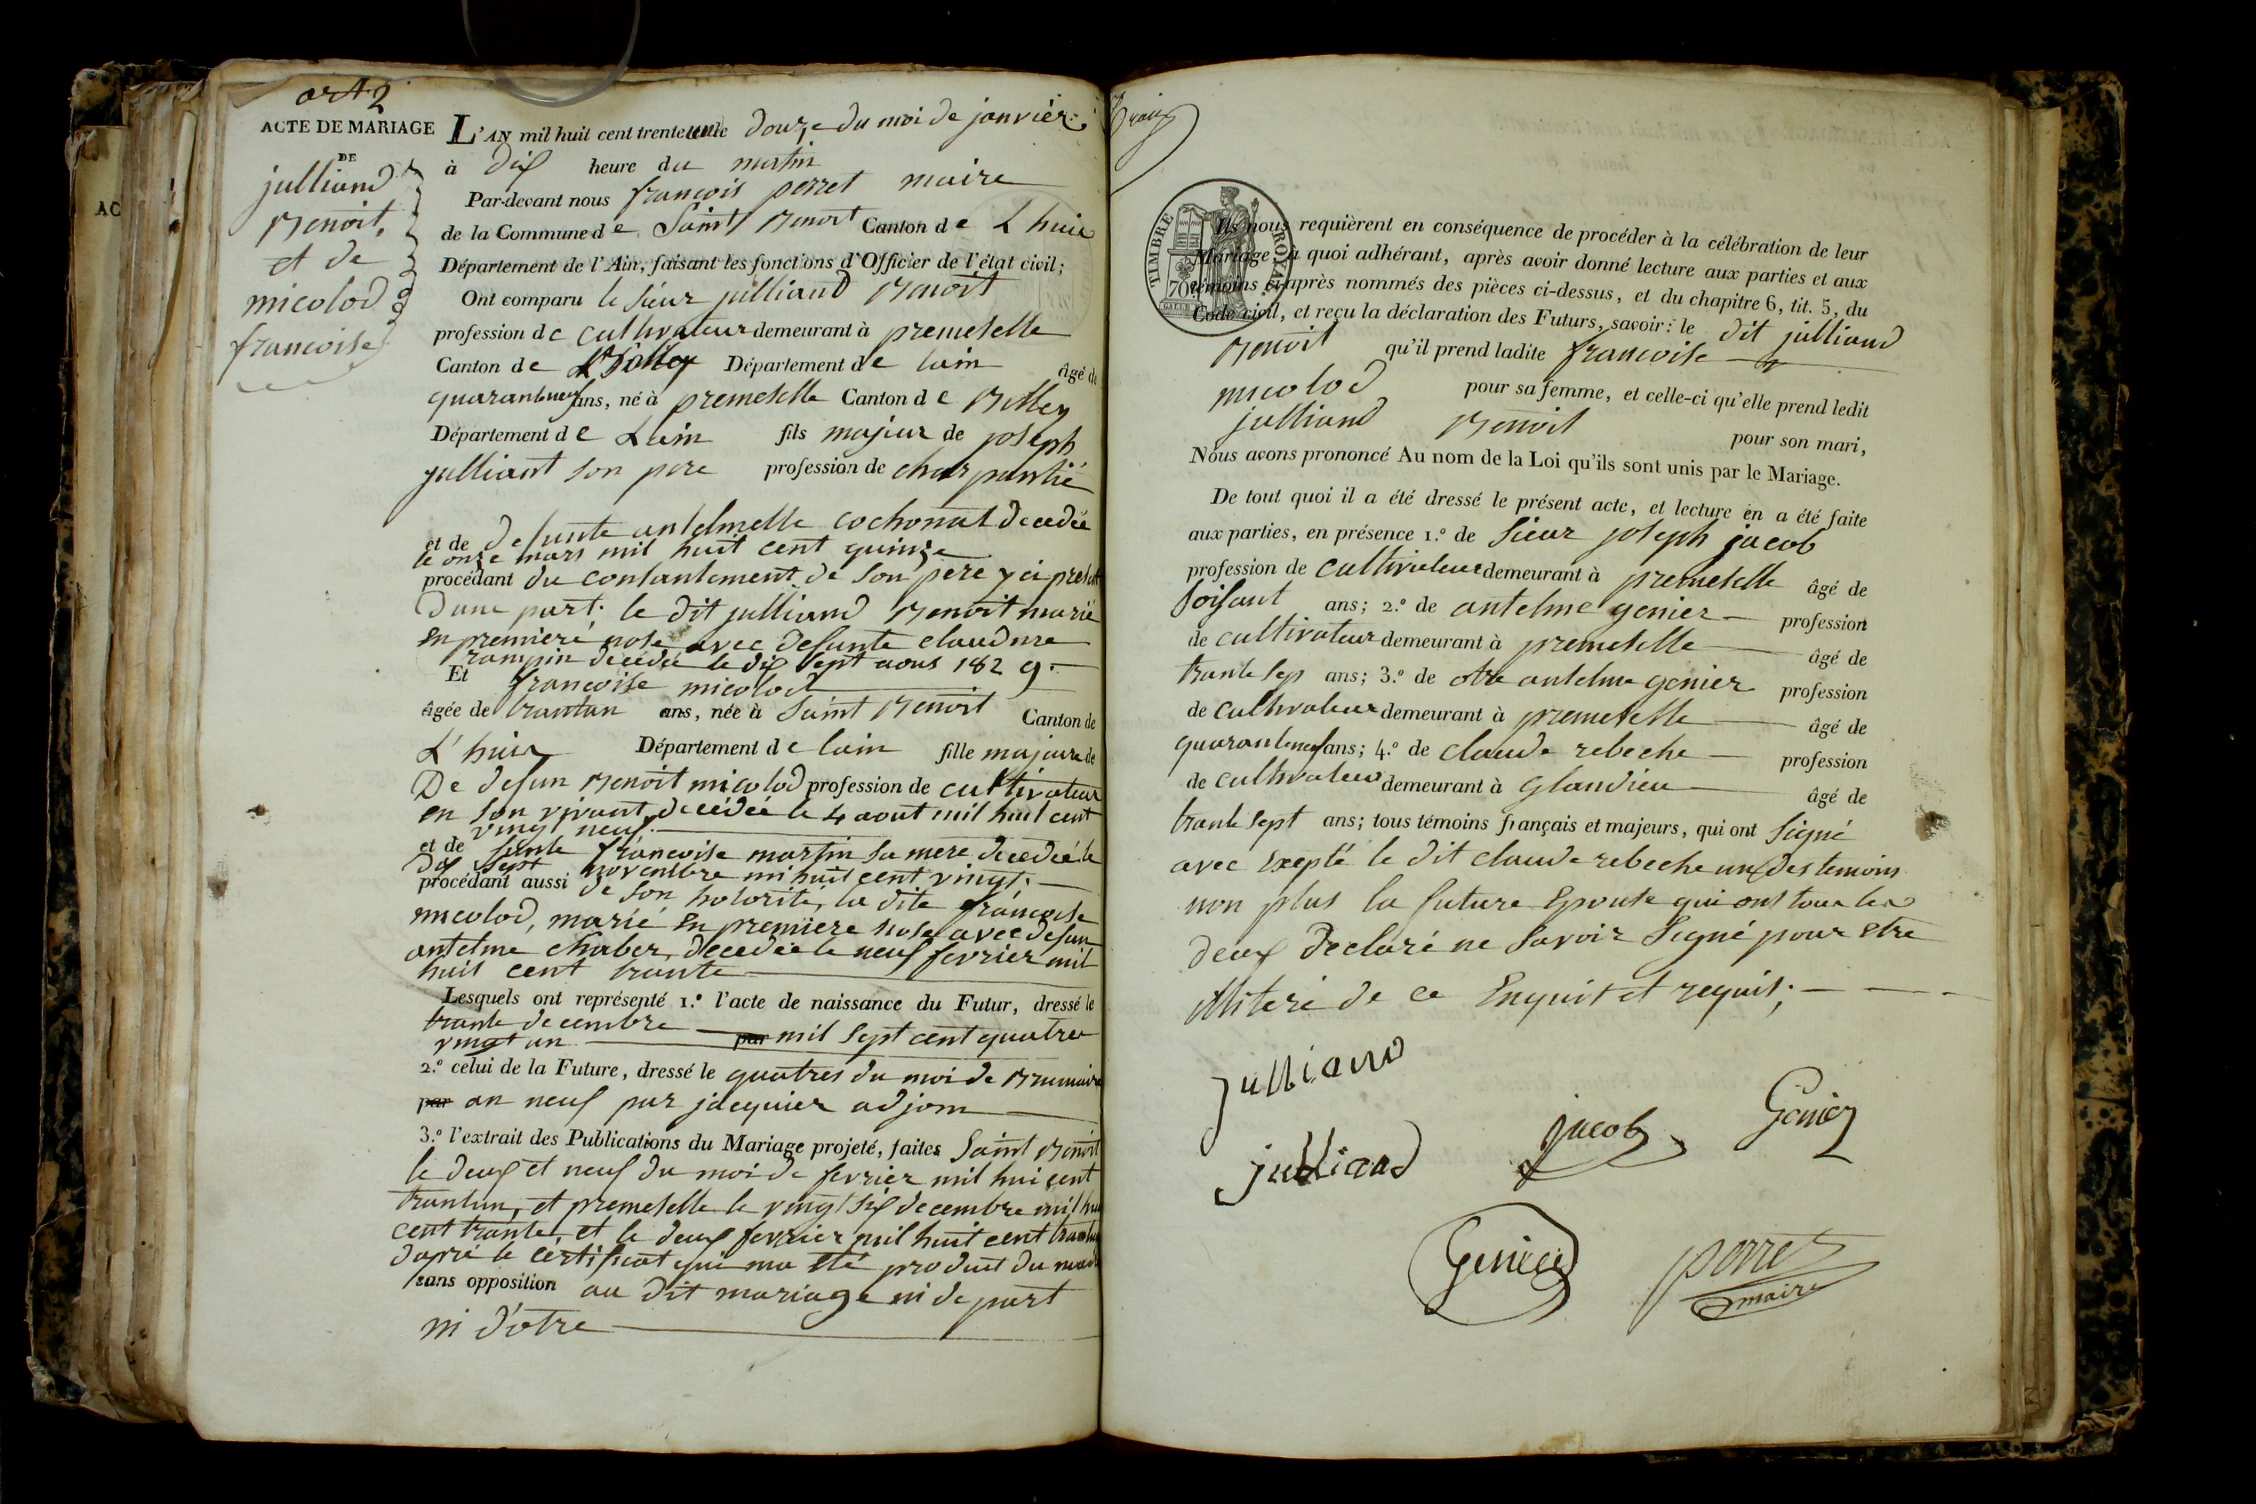 art 2
ACTE DE MARIAGE
DE
julliand
Benoit
et de
micolod
francoise
L'AN mil huit cent trente unle douze du moi de janvier
à dix heure du matin
Par-devant nous françois perret maire
de la Commune de Saint Benoit Canton de L huis
Département de l'Ain, faisant les fonctions d'Officier de l'état civil;
Ont comparu le sieur julliand Benoit
profession de cultivateur demeurant à premeselle
Canton de Belley Département de lain âgé de
quarantneuf ans, né à premeselle Canton de Belley
Département de Lain fils majeur de joseph
julliant son pere profession de charpantié
et de defunte antelmette cochonat decedée
le onze mars mil huit cent quinze
procédant du consantement de son pere y ci presant
dune part; le dit julliand Benoit marié
en premiere nose avec defunte claudine
decedée le dix sept aous 1829.
Et francoise micolod
âgée de trantun ans, née à Saint Benoit Canton de
L'huis Département de lain fille majeure de
De defun Benoit micolod profession de cultivateur
en son vivant decédée le 4 aout mil huit cent
vingt neuf
et de funte francoise martin sa mere decedée le
dix sept novembre mi huit cent vingt;
procédant aussi de son hotorité, la dite francoise
micolod, marié en premiere nose avec defun
antelme chaber, decedée le neuf fevrier mil
huit cent trante
Lesquels ont représenté 1.º l'acte de naissance du Futur, dressé le
trante decembre par mil sept cent quatre
vingt un
2.º celui de la Future, dressé le quatres du moi de Brumaire
par an neuf par jacquier adjoin
3.º l'extrait des Publications du Mariage projeté, faites Saint Benoit
le deux et neuf du moi de fevrier mil hui cent
trantun, et premeselle le vingt six decembre mil hui
cent trante, et le deux fevrier mil huit cent trantun
daprè le certificat qui ma eté produit du maire
sans opposition au dit mariage ni de part
ni d'otre
TIMBRE ROYAL
70
Ils nous requièrent en conséquence de procéder à la célébration de leur
Mariage, à quoi adhérant, après avoir donné lecture aux parties et aux
témoins ci-après nommés des pièces ci-dessus, et du chapitre 6, tit. 5, du
Code civil, et reçu la déclaration des Futurs, savoir: le dit julliand
Benoit qu'il prend ladite francoise
micolod pour sa femme, et celle-ci qu'elle prend ledit
julliand Benoit pour son mari,
Nous avons prononcé Au nom de la Loi qu'ils sont unis par le Mariage.
De tout quoi il a été dressé le présent acte, et lecture en a été faite
aux parties, en présence 1.º de Sieur joseph jacob
profession de cultivateur demeurant à premeselle âgé de
soisant ans; 2.º de antelme genier profession
de cultivateur demeurant à premeselle âgé de
trante sep ans; 3.º de otre antelme genier profession
de cultivateur demeurant à premeselle âgé de
quarantneuf ans; 4.º de claude rebeche profession
de cultivateur demeurant à Glandieu âgé de
trante sept ans; tous témoins français et majeurs, qui ont Signé
avec exepté le dit claude rebeche un des temoins
non plus la future Epouse qui ont tous les
deux declaré ne Savoir Signé pour etre
illiteré de ce Enquis et requis;
julliand
jacob
Genier
julliand
Genier
perret
maire